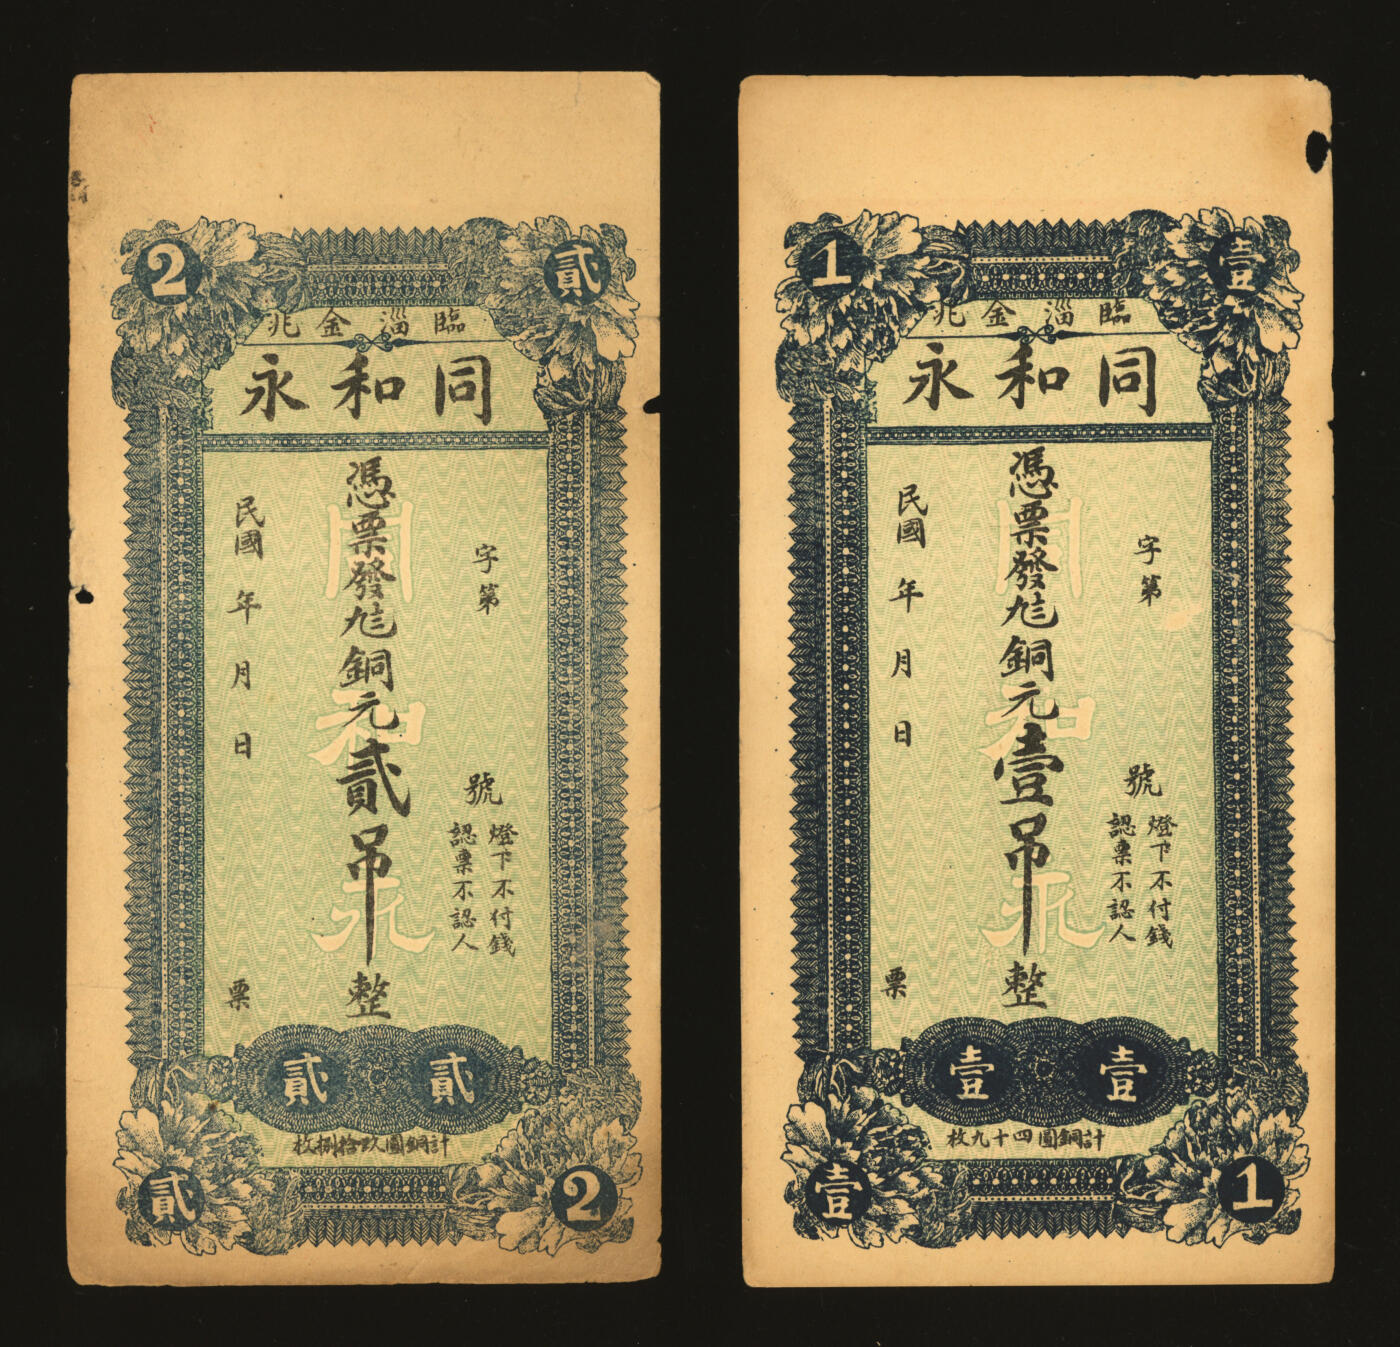 2
貳
臨淄金兆
同和永
字第
號
燈下不付錢
認票不認人
憑票發銅元貳吊整
民國 年 月 日
票
同和永
貳 貳
計銅圓玖拾捌枚
貳
2
1
壹
臨淄金兆
同和永
字第
號
燈下不付錢
認票不認人
憑票發銅元壹吊整
民國 年 月 日
票
同和永
壹 壹
計銅圓四十九枚
壹
1